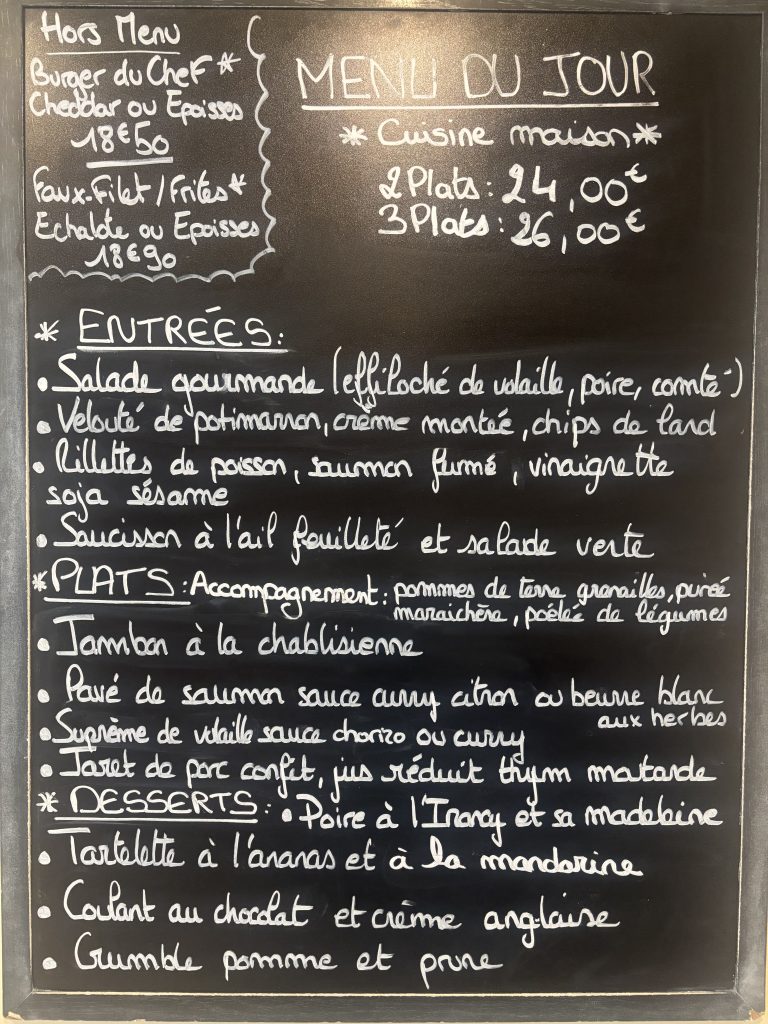 Hors Menu
Burger du Chef *
Cheddar ou Epoisses
18€50
Faux-Filet / Frites *
Echalote ou Epoisses
18€90
MENU DU JOUR
* Cuisine maison *
2 Plats : 24,00€
3 Plats : 26,00€
* ENTRÉES :
• Salade gourmande (effiloché de volaille, poire, comté)
• Velouté de potimarron, crème montée, chips de lard
• Rillettes de poisson, saumon fumé, vinaigrette
soja sésame
• Saucisson à l'ail feuilleté et salade verte
* PLATS : Accompagnement : pommes de terre grenailles, purée
maraichère, poêlée de légumes
• Jambon à la chablisienne
• Pavé de saumon sauce curry citron ou beurre blanc
aux herbes
• Suprème de volaille sauce chorizo ou curry
• Jaret de porc confit, jus réduit thym moutarde
* DESSERTS : • Poire à l'Irancy et sa madeleine
• Tartelette à l'ananas et à la mandarine
• Coulant au chocolat et crème anglaise
• Crumble pomme et prune